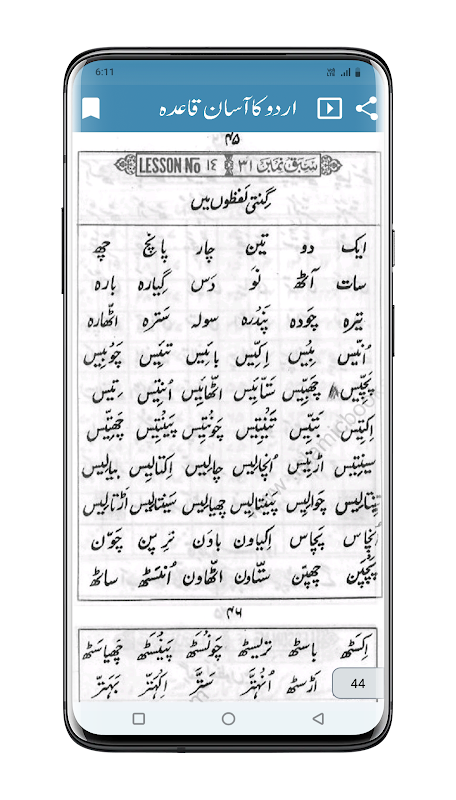 6:11
اردو کا آسان قاعدہ
۴۵
سبق نمبر ۳۱ LESSON No ١٤
گِنتی لفظوں میں
ایک دو تین چار پانچ چھ
سات آٹھ نَو دَس گیارہ بارہ
تیرہ چَودہ پَندرہ سولہ سَترہ اٹّھارہ
اُنّیس بِیس اِکّیس بائیس تئیس چَوبیس
پَچّیس چھَبّیس ستّائیس اٹّھائیس اُنتیس تِیس
اِکتیس بَتّیس تَینتیس چَونتیس پَینتیس چھَتّیس
سَینتیس اَڑتیس اُنچالیس چالیس اِکتالیس بیالیس
تَینتالیس چَوالیس پَینتالیس چھیالیس سَینتالیس اَڑتالیس
اُنچاس پَچاس اِکیاون باوَن تِرپن چَوّن
پَچپَن چھپّن ستّاون اٹّھاون اُنسَٹھ ساٹھ
۴۶
اِکسَٹھ باسٹھ تریسٹھ چَونسَٹھ پَینسَٹھ چھیاسٹھ
اَڑسٹھ اُنہَتّر سَتَّر اِکہَتّر بَہَتّر
44